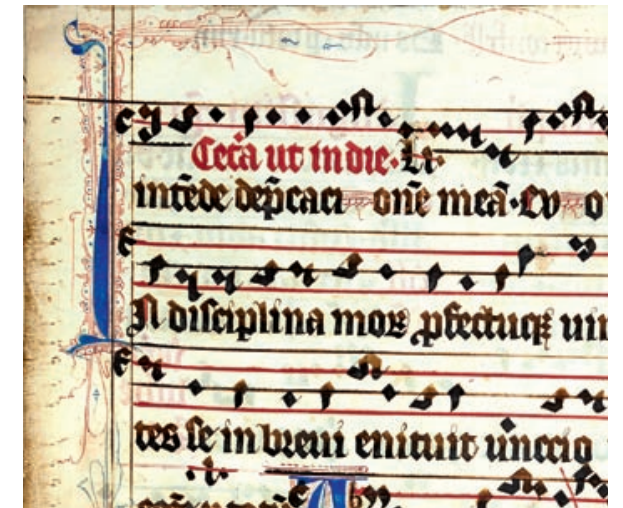 Cet̃a ut in die.
intẽde dep̃caci onẽ meã.
IN disciplina moꝝ ꝓfectuqꝫ uir
tes se in breui enituit unccio